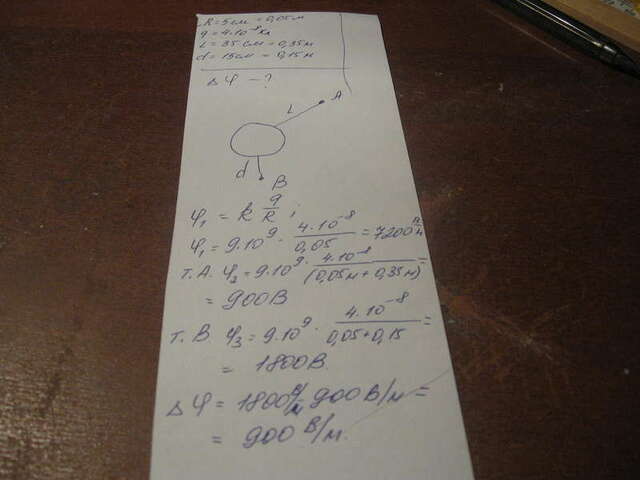 R = 5 см = 0,05 м
q = 4·10⁻⁸ Кл
L = 35 см = 0,35 м
d = 15 см = 0,15 м
Δφ - ?
L A
d
B
φ₁ = k q/R ;
φ₁ = 9·10⁹ · 4·10⁻⁸/0,05 = 7200 В/м
т. А. φ₂ = 9·10⁹ · 4·10⁻⁸/(0,05м + 0,35м) =
= 900 В
т. В. φ₃ = 9·10⁹ · 4·10⁻⁸/0,05+0,15 =
= 1800 В.
Δφ = 1800 В/м 900 В/м =
= 900 В/м.